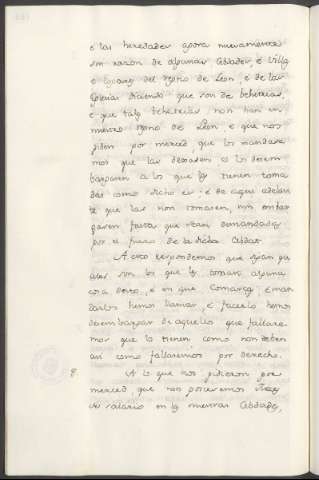 e las heredades agora nuevamente
sin razón de algunas Cibdades, e Villas
e Lugares del Regno de Leon, e de las
Iglesias diciendo que son de behetrias,
e que tales behetrias non han en
nuestro regno de Leon e que nos
piden por merced, que los mandase
mos que las dexasen o los desem
bargasen a los que las tienen toma
das como dicho es e de aqui adelan
te que las non tomasen, nin embar
gasen fasta que sean demandadas
por el fuero de la dicha Cibdat
A esto respondemos que digan qua
les son los que les toman alguna
cosa desto, e en que Comarca, e man
darlos hemos llamar, e facerlo hemos
desembargar de aquellos que fallare
mos que lo tienen como non deben
asi como fallaremos por derecho.
8
A lo que nos pidieron por
merced, que non posieremos
de salario en las nuestras Cibdades,